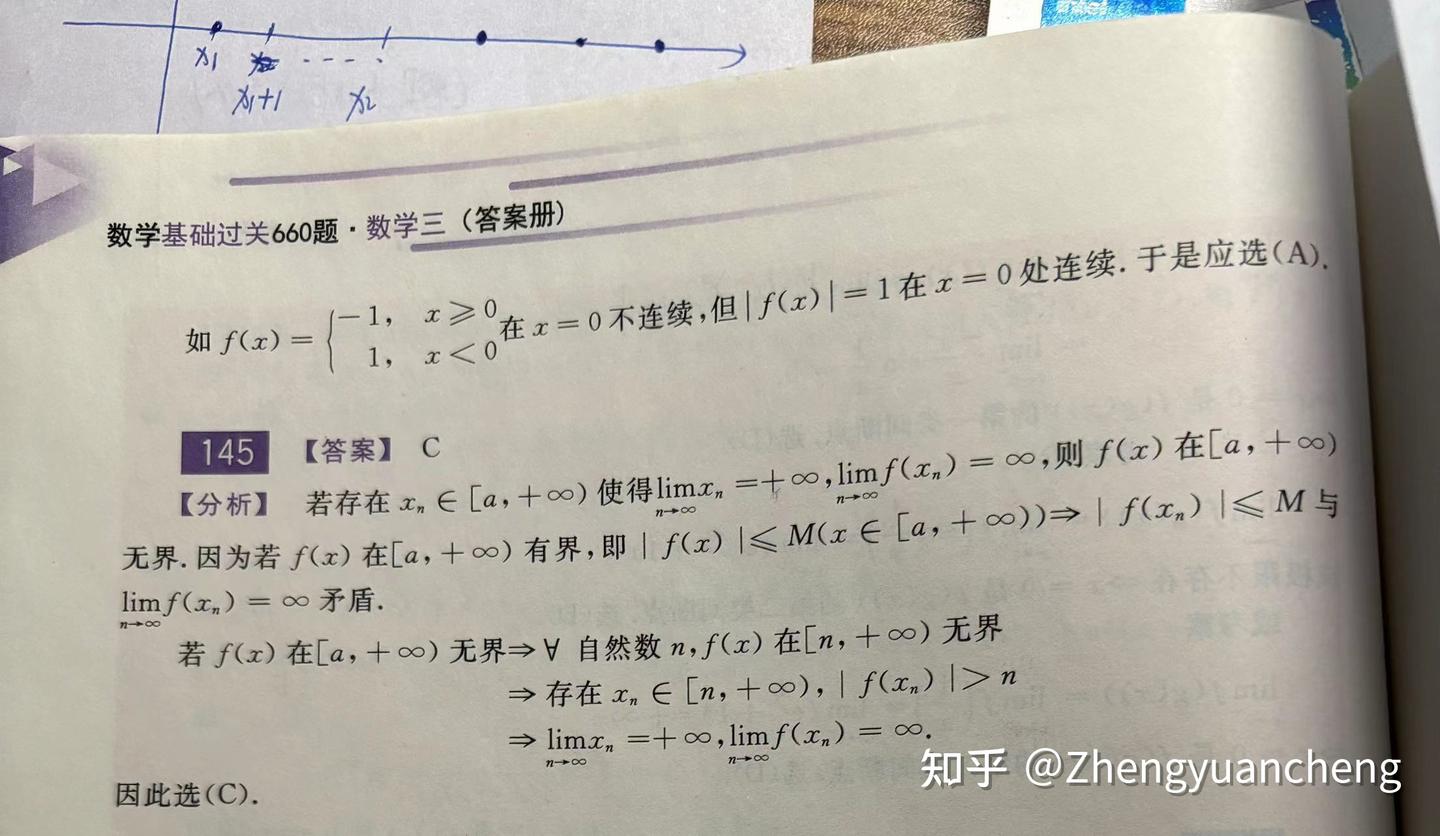 x₁ x₂ ----
x₁+1 x₂
数学基础过关660题·数学三(答案册)
如 f(x) = { -1, x ⩾ 0
1, x < 0 在 x = 0 不连续,但|f(x)| = 1 在 x = 0 处连续.于是应选(A).
145 【答案】 C
【分析】 若存在 xₙ ∈ [a,+∞) 使得 lim_{n→∞} xₙ = +∞, lim_{n→∞} f(xₙ) = ∞,则 f(x) 在[a,+∞)
无界.因为若 f(x) 在[a,+∞) 有界,即 | f(x) |⩽ M(x ∈ [a,+∞))⇒ | f(xₙ) |⩽ M 与
lim_{n→∞} f(xₙ) = ∞ 矛盾.
若 f(x) 在[a,+∞) 无界⇒ ∀ 自然数 n,f(x) 在[n,+∞) 无界
⇒ 存在 xₙ ∈ [n,+∞),| f(xₙ) |> n
⇒ lim_{n→∞} xₙ = +∞, lim_{n→∞} f(xₙ) = ∞.
因此选(C).
知乎 @Zhengyuancheng